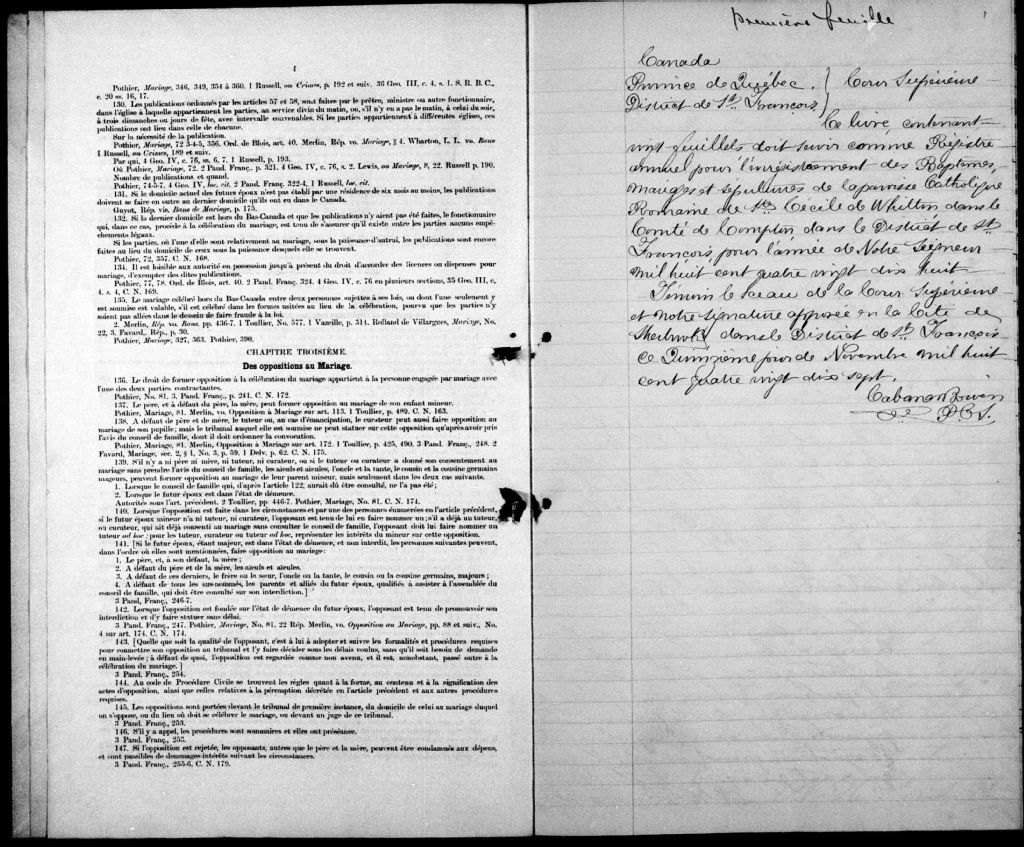 Pothier, Mariage, 346, 349, 354 à 360. 1 Russell, on Crimes, p. 192 et suiv. 36 Geo. III, c. 4. s. 1. S. R. B. C.,
c. 20 ss. 16, 17.
130. Les publications ordonnés par les articles 57 et 58, sont faites par le prêtre, ministre ou autre fonctionnaire,
dans l'église à laquelle appartiennent les parties, au service divin du matin, ou, s'il n'y en a pas le matin, à celui du soir,
à trois dimanches ou jours de fête, avec intervalle convenables. Si les parties appartiennent à différentes églises, ces
publications ont lieu dans celle de chacune.
Sur la nécessité de la publication.
Pothier, Mariage, 72 3-4-5, 356, Ord. de Blois, art. 40. Merlin, Rép. vo. Mariage, § 4. Wharton, L. L. vo. Bans
1 Russell, on Crimes, 189 et suiv.
Par qui, 4 Geo. IV, c. 76, ss. 6, 7. 1 Russell, p. 193.
Où Pothier, Mariage, 72. 2 Pand. franç. p. 321. 4 Geo. IV, c. 76, s. 2. Lewis, on Mariage, 8, 22. Russell p. 190.
Nombre de publications et quand.
Pothier, 74-5-7. 4 Geo. IV, loc. cit. 2 Pand. Franç. 322-4, 1 Russell, loc. cit.
131. Si le domicile actuel des futurs époux n'est pas établi par une résidence de six mois au moins, les publications
doivent se faire en outre au dernier domicile qu'ils ont eu dans le Canada.
Guyot, Rép. vis. Bans de Mariage, p. 175.
132. Si le dernier domicile est hors du Bas-Canada et que les publications n'y aient pas été faites, le fonctionnaire
qui, dans ce cas, procède à la célébration du mariage, est tenu de s'assurer qu'il existe entre les parties aucuns empê-
chements légaux.
Si les parties, où l'une d'elle sont relativement au mariage, sous la puissance d'autrui, les publications sont encore
faites au lieu du domicile de ceux sous la puissance desquels elle se trouvent.
Pothier, 72, 357. C. N. 168.
134. Il est loisible aux autorité en possession jusqu'à présent du droit d'accorder des licences ou dispenses pour
mariage, d'exempter des dites publications.
Pothier, 77, 78. Ord. de Blois, art. 40. 2 Pand. Franç. 324. 4 Geo. IV, c. 76 en plusieurs sections, 35 Geo. III, c.
4. s. 4, C. N. 169.
135. Le mariage célébré hors du Bas-Canada entre deux personnes sujètes à ses lois, ou dont l'une seulement y
est soumise est valable, s'il est célébré dans les formes usitées au lieu de la célébration, pourvu que les parties n'y
soient pas allées dans le dessein de faire fraude à la loi.
2. Merlin, Rép. vo. Bans. pp. 436-7. 1 Toullier, No. 577. 1 Vazeille, p. 311. Rolland de Villargues, Mariage, No.
22, 3 Favard, Rép., p. 30.
Pothier, Mariage, 327, 363. Pothier, 390.
CHAPITRE TROISIÈME.
Des oppositions au Mariage.
136. Le droit de former opposition à la célébration du mariage appartient à la personne engagée par mariage avec
l'une des deux parties contractantes.
Pothier, No. 81. 3. Pand. Franç., p. 241. C. N. 172.
137. Le père, et à défaut du père, la mère, peut former opposition au mariage de son enfant mineur.
Pothier, Mariage, 81. Merlin, vo. Opposition à Mariage sur art. 113. 1 Toullier, p. 489. C. N. 163.
138. A défaut de père et de mère, le tuteur ou, au cas d'émancipation, le curateur peut aussi faire opposition au
mariage de son pupille; mais le tribunal auquel elle est soumise ne peut statuer sur cette opposition qu'après avoir pris
l'avis du conseil de famille, dont il doit ordonner la convocation.
Pothier, Mariage, 81. Merlin, Opposition à Mariage sur art. 172. 1 Toullier, p. 425, 490. 3 Pand. Franç., 248. 2
Favard, Mariage, sec. 2, § 1, No. 3, p. 59. 1 Delv. p. 62. C. N. 175.
139. S'il n'y a ni père ni mère, ni tuteur, ni curateur, ou si le tuteur ou curateur a donné son consentement au
mariage sans prendre l'avis du conseil de famille, les aieuls et aieules, l'oncle et la tante, le cousin et la cousine germains
majeurs, peuvent former opposition au mariage de leur parent mineur, mais seulement dans les deux cas suivants.
1. Lorsque le conseil de famille qui, d'après l'article 122, aurait dû être consulté, ne l'a pas été;
2. Lorsque le futur époux est dans l'état de démence.
Autorités sous l'art. précédent. 2 Toullier, pp 446-7. Pothier, Mariage, No. 81. C. N. 174.
140. Lorsque l'opposition est faite dans les circonstances et par une des personnes énumérées en l'article précédent,
si le futur époux mineur n'a ni tuteur, ni curateur, l'opposant est tenu de lui en faire nommer un; s'il a déjà un tuteur,
ou curateur, qui ait déjà consenti au mariage sans consulter le conseil de famille, l'opposant doit lui faire nommer un
tuteur ad hoc; pour les tuteur, curateur ou tuteur ad hoc, représenter les intérêts du mineur sur cette opposition.
141. [Si le futur époux, étant majeur, est dans l'état de démence, et non interdit, les personnes suivantes peuvent,
dans l'ordre où elles sont mentionnées, faire opposition au mariage:
1. Le père, et, à son défaut, la mère;
2. A défaut du père et de la mère, les aieuls et aieules.
3. A défaut de ces derniers, le frère ou le sœur, l'oncle ou la tante, le cousin ou la cousine germains, majeurs;
4. A défaut de tous les sus-nommés, les parents et alliés du futur époux, qualifiés à assister à l'assemblée du
conseil de famille, qui doit être consulté sur son interdiction.]
3 Pand. Franç., 246-7.
142. Lorsque l'opposition est fondée sur l'état de démence du futur époux, l'opposant est tenu de promouvoir son
interdiction et d'y faire statuer sans délai.
3 Pand. Franç., 247. Pothier, Mariage, No. 81. 22 Rép. Merlin, vo. Opposition au Mariage, pp. 88 et suiv., No.
4 sur art. 174. C. N. 174.
143. [Quelle que soit la qualité de l'opposant, c'est à lui à adopter et suivre les formalités et procédures requises
pour soumettre son opposition au tribunal et l'y faire décider sous les délais voulus, sans qu'il soit besoin de demande
en main-levée; à défaut de quoi, l'opposition est regardée comme non avenu, et il est, nonobstant, passé outre à la
célébration du mariage.]
3 Pand. Franç., 254.
144. Au code de Procédure Civile se trouvent les règles quant à la forme, au contenu et à la signification des
actes d'opposition, ainsi que celles relatives à la péremption décrétée en l'article précédent et aux autres procédures
requises.
145. Les oppositions sont portées devant le tribunal de première instance, du domicile de celui au mariage duquel
on s'oppose, ou du lieu où doit se célébrer le mariage, ou devant un juge de ce tribunal.
3 Pand. Franç., 253.
146. S'il y a appel, les procédures sont sommaires et elles ont préséance.
3 Pand. Franç., 255.
147. Si l'opposition est rejetée, les opposants, autres que le père et la mère, peuvent être condamnés aux dépens,
et sont passibles de dommages-intérêts suivant les circonstances.
3 Pand. Franç., 255-6, C. N. 179.
première feuille
1
Canada
Province de Québec. } Cour Supérieure
District de St. François }
Ce livre, contenant
vint feuillets doit servir comme Régistre
annuel pour l'enrégistrement des Baptêmes,
mariages et sépultures de la paroisse Catholique
Romaine de Ste Cecile de Whitton dans le
Comté de Compton dans le District de St.
François, pour l'année de Notre Seigneur
mil huit cent quatre vingt dix huit
Témoin le sceau de la Cour Supérieure
et notre signature apposée en la Cité de
Sherbrooke dans le District de St. François
ce Quinzième jour de Novembre mil huit
cent quatre vingt dix sept.
P.C.S.